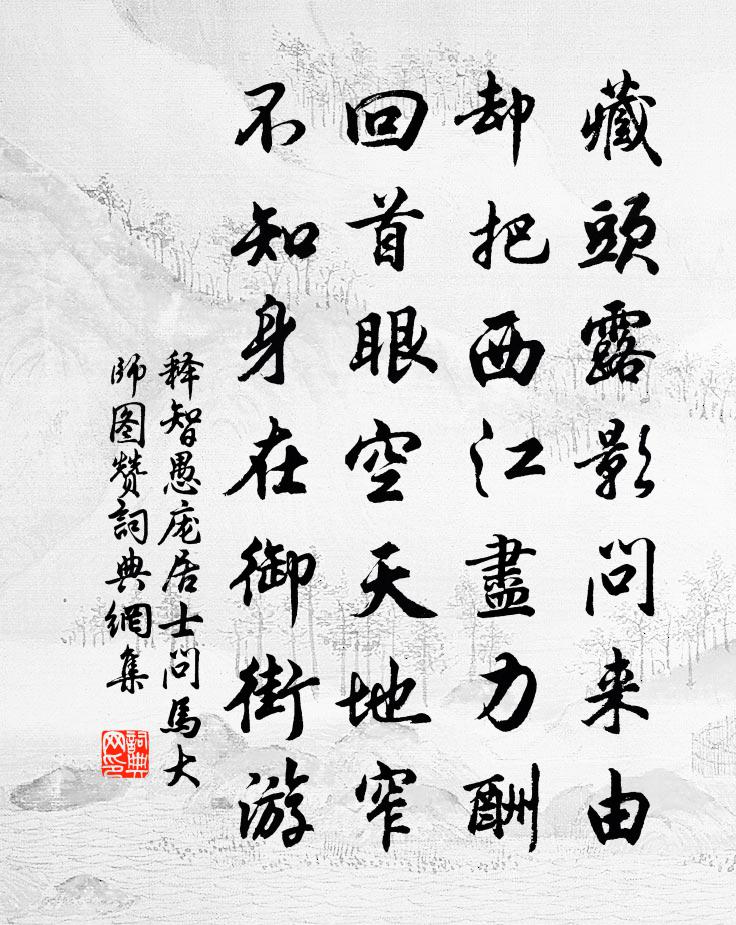 藏頭露影問来由
却把西江盡力酬
回首眼空天地窄
不知身在御街游
释智愚庞居士問馬大
師图赞詞典網集
詞典网印